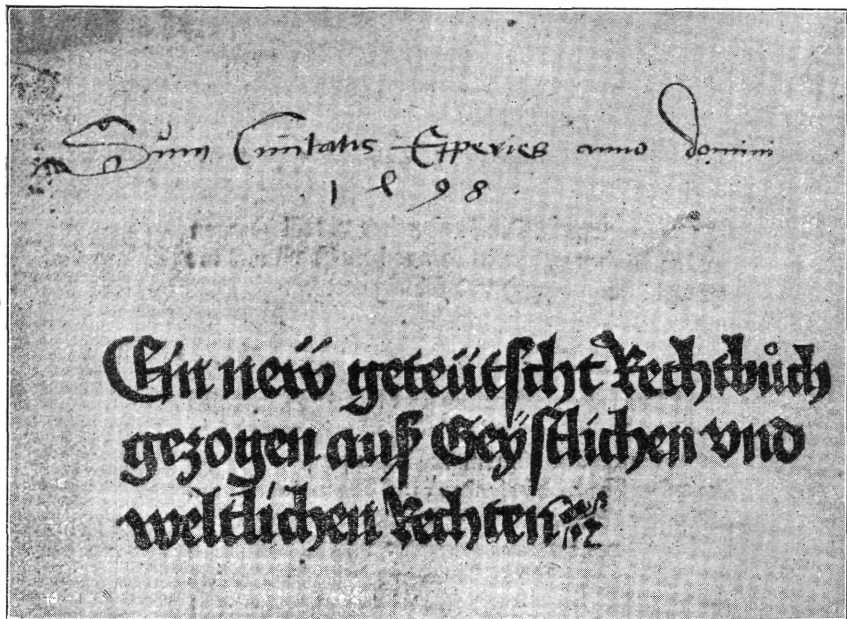 Sum Ciuitatis Epperies anno domini
1 4 9 8
Ein neẅ geteütscht Rechtbůch
gezogen auß Geÿstlichen vnd
weltlichen Rechten